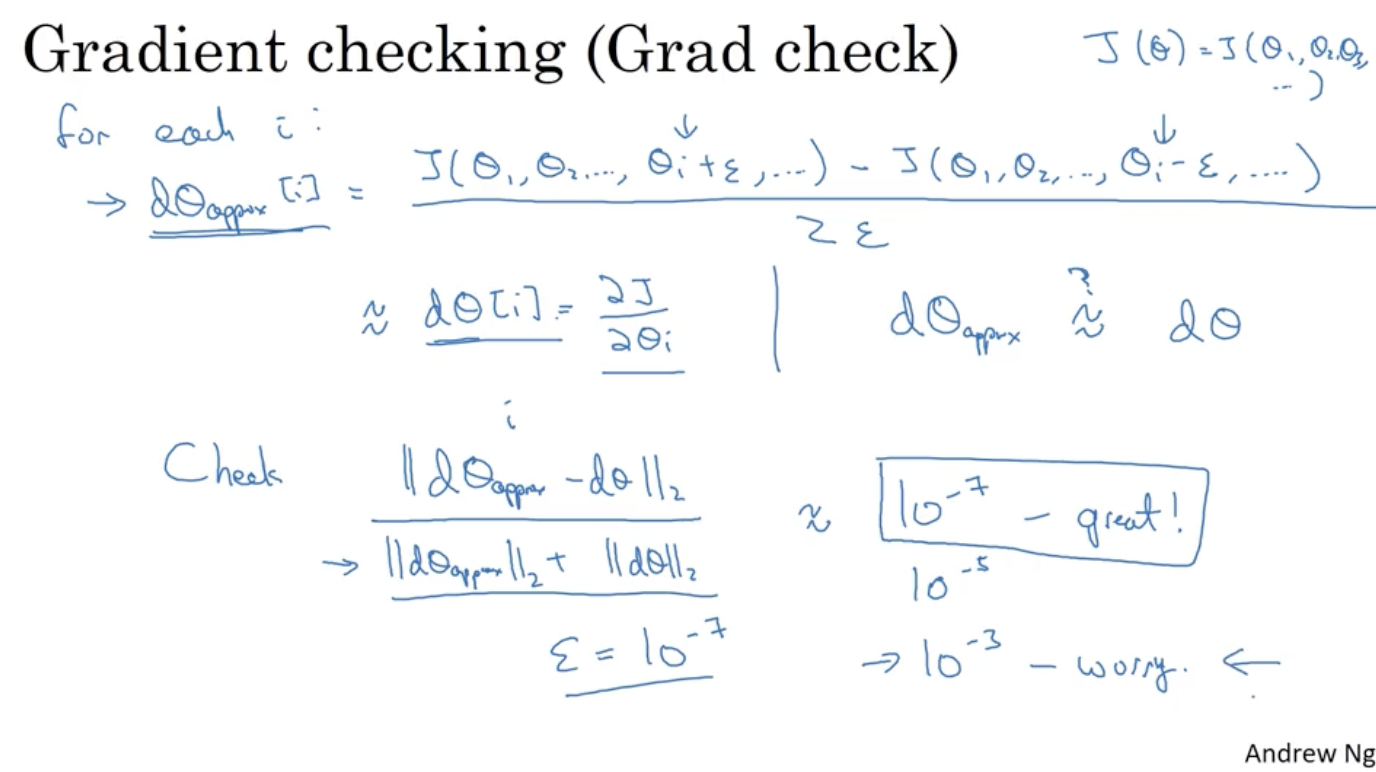 Gradient checking (Grad check)
J(θ) = J(θ₁, θ₂, θ₃, ...)
for each i:
→ dθapprox[i] = J(θ₁, θ₂, ..., θᵢ+ε, ...) - J(θ₁, θ₂, ..., θᵢ-ε, ....)
2ε
≈ dθ[i] = ∂J/∂θᵢ | dθapprox ≈? dθ
i
Check ||dθapprox - dθ||₂ ≈ 10⁻⁷ - great!
→ ||dθapprox||₂ + ||dθ||₂
10⁻⁵
ε = 10⁻⁷
→ 10⁻³ - worry. ←
Andrew Ng